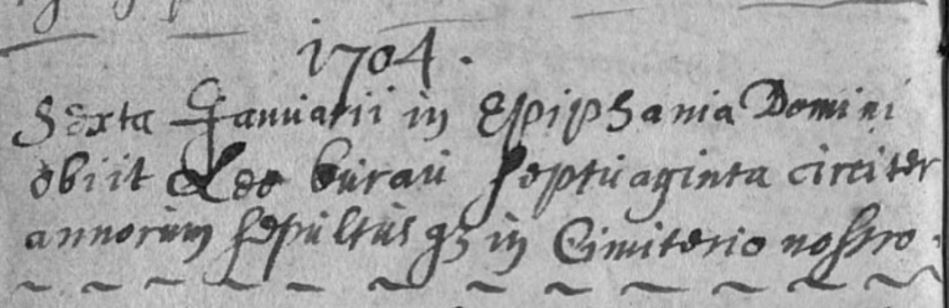 1704.
Sexta Januarii in Epiphania Domini
obiit Leo burau septuaginta circiter
annorum sepultus q3 in Cimiterio nostro.